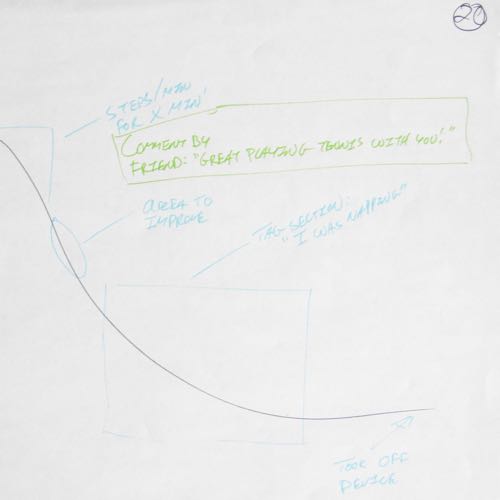 20
STEPS/MIN
FOR X MIN'
COMMENT BY
FRIEND: "GREAT PLAYING TENNIS WITH YOU!"
AREA TO
IMPROVE
TAG SECTION:
"I WAS NAPPING"
TOOK OFF
DEVICE